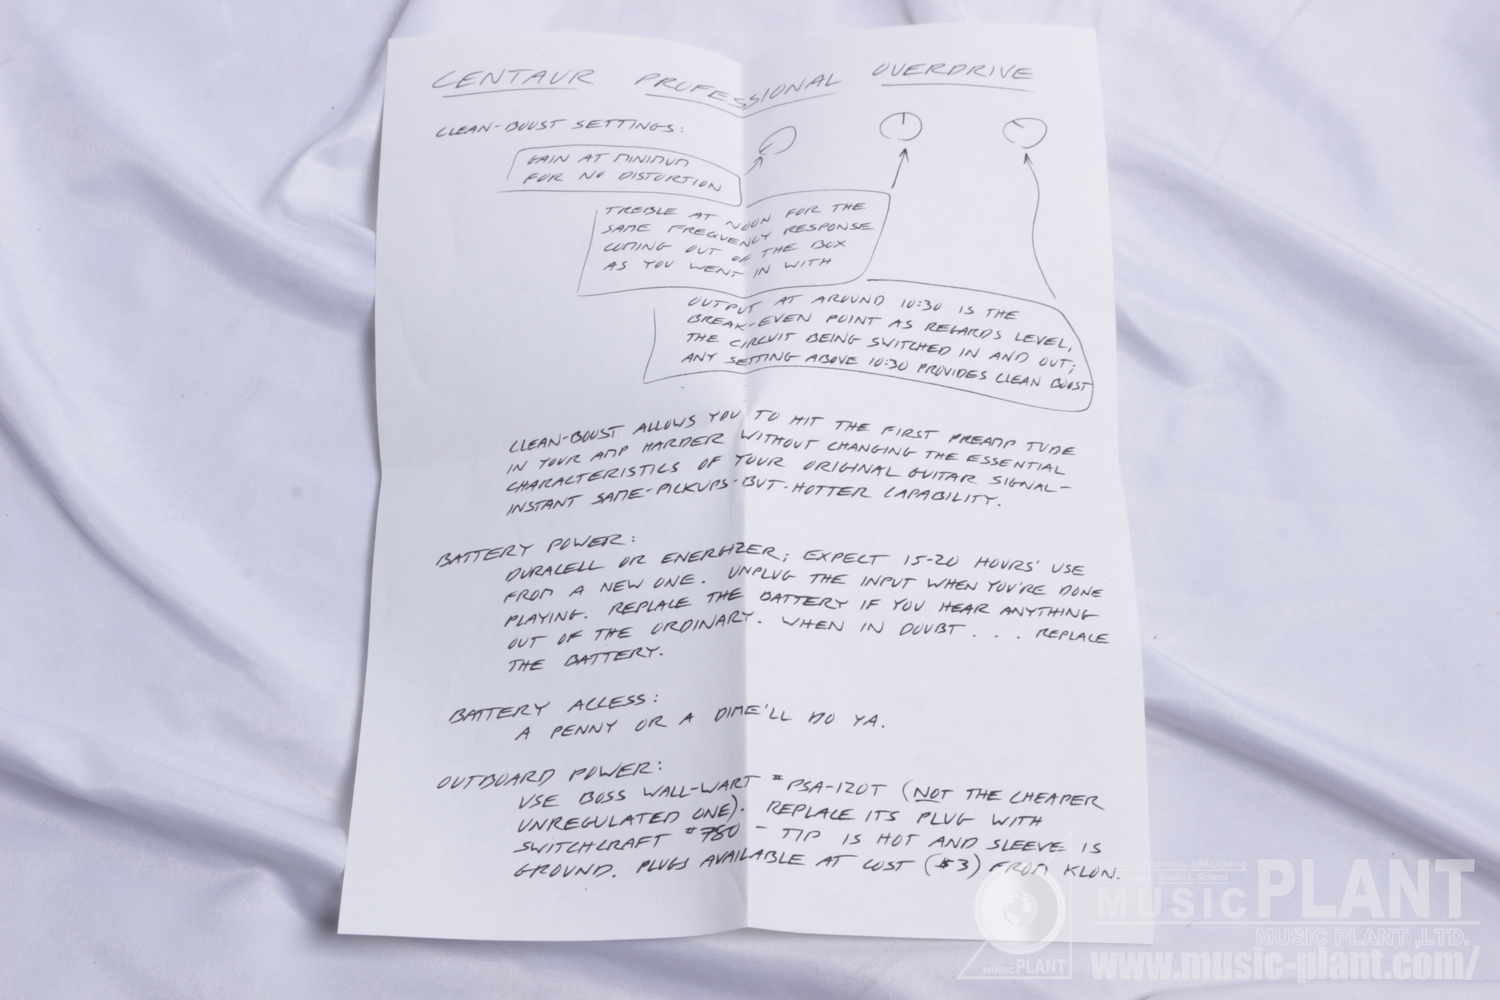 CENTAUR PROFESSIONAL OVERDRIVE
CLEAN-BOOST SETTINGS:
GAIN AT MINIMUM
FOR NO DISTORTION
TREBLE AT NOON FOR THE
SAME FREQUENCY RESPONSE
COMING OUT OF THE BOX
AS YOU WENT IN WITH
OUTPUT AT AROUND 10:30 IS THE
BREAK-EVEN POINT AS REGARDS LEVEL,
THE CIRCUIT BEING SWITCHED IN AND OUT;
ANY SETTING ABOVE 10:30 PROVIDES CLEAN BOOST
CLEAN-BOOST ALLOWS YOU TO HIT THE FIRST PREAMP TUBE
IN YOUR AMP HARDER WITHOUT CHANGING THE ESSENTIAL
CHARACTERISTICS OF YOUR ORIGINAL GUITAR SIGNAL-
INSTANT SAME-PICKUPS-BUT-HOTTER CAPABILITY.
BATTERY POWER:
DURACELL OR ENERGIZER; EXPECT 15-20 HOURS' USE
FROM A NEW ONE. UNPLUG THE INPUT WHEN YOU'RE DONE
PLAYING. REPLACE THE BATTERY IF YOU HEAR ANYTHING
OUT OF THE ORDINARY. WHEN IN DOUBT . . . REPLACE
THE BATTERY.
BATTERY ACCESS:
A PENNY OR A DIME'LL DO YA.
OUTBOARD POWER:
USE BOSS WALL-WART #PSA-120T (NOT THE CHEAPER
UNREGULATED ONE). REPLACE ITS PLUG WITH
SWITCHCRAFT #780 - TIP IS HOT AND SLEEVE IS
GROUND. PLUGS AVAILABLE AT COST ($3) FROM KLON.
MUSIC PLANT
MUSIC PLANT ,LTD.
MUSIC PLANT
www.music-plant.com/